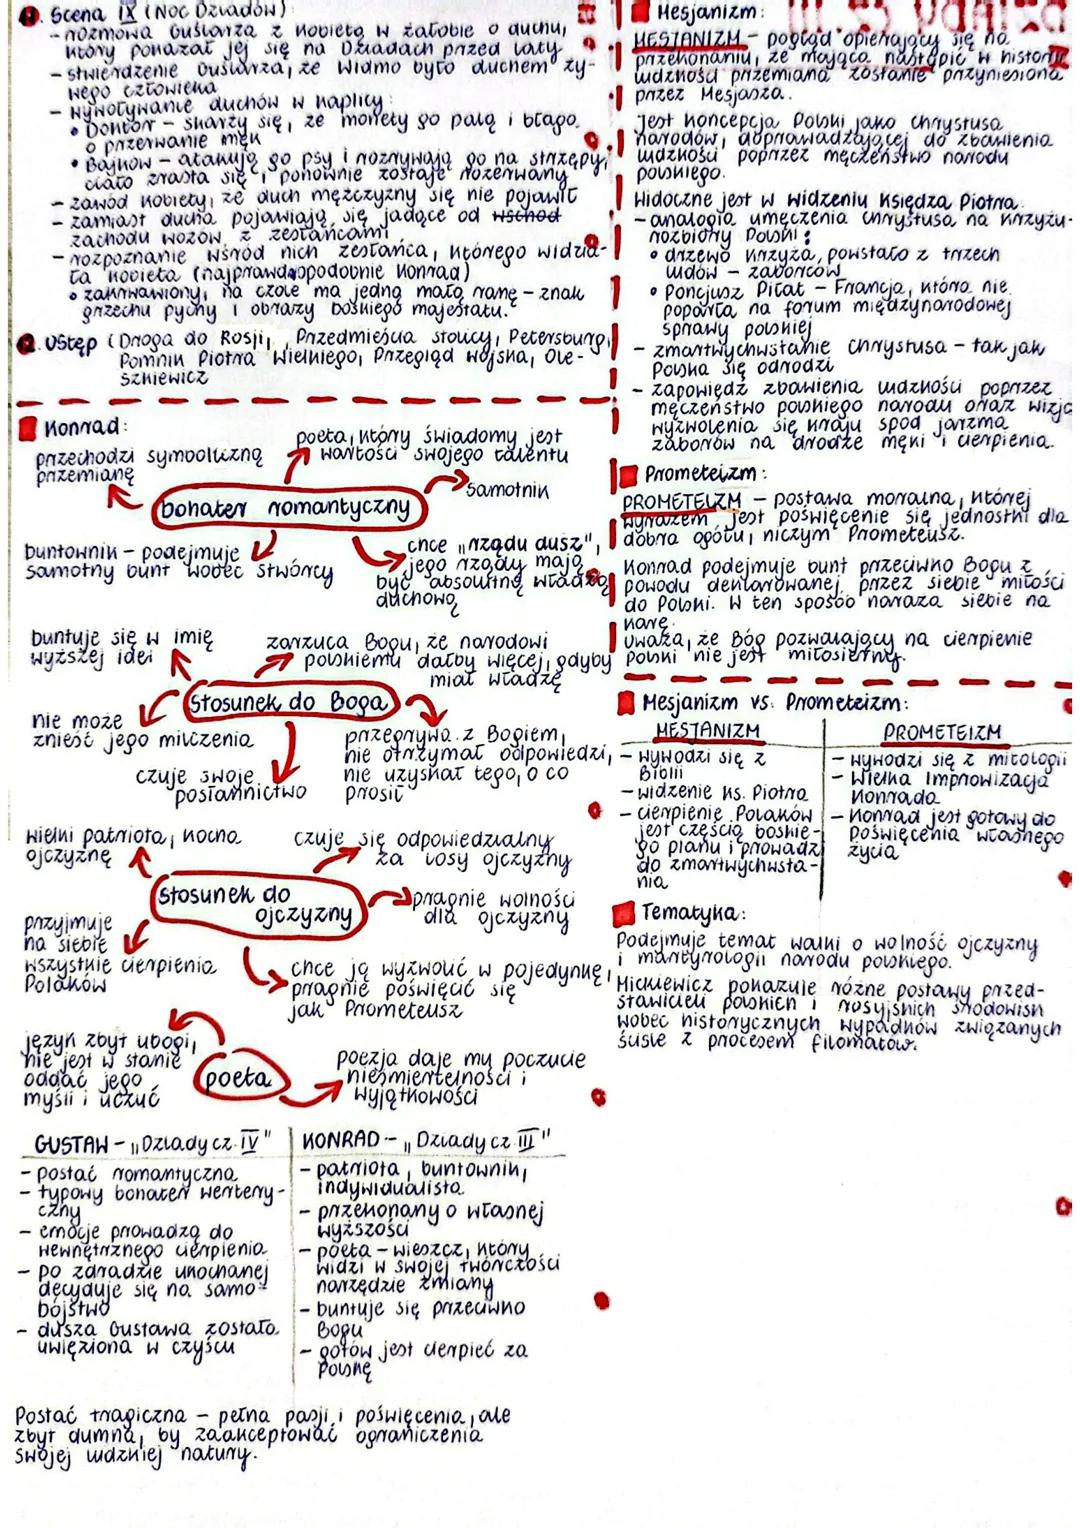 Scena IX (Noc Dziadów):
- rozmowa Guślarza z kobietą w żałobie o duchu,
który pokazał jej się na Dziadach przed laty
- stwierdzenie Guślarza, że widmo było duchem ży-
wego człowieka
- wywoływanie duchów w kaplicy:
• Doktor - skarży się, że monety go palą i błaga
o przerwanie mąk
• Bajkow - atakują go psy i rozrywają go na strzępy,
ciało zrasta się i ponownie zostaje rozerwany
- zawód kobiety, że duch mężczyzny się nie pojawił
- zamiast ducha pojawiają się jadące od wschod
zachodu wozów z zesłańcami
- rozpoznanie wśród nich zesłańca, którego widzia-
ła kobieta (najprawdopodobnie Konrad)
• zakrwawiony, na czole ma jedną małą ranę - znak
grzechu pychy i obrazy boskiego majestatu.
Ustęp (Droga do Rosji, Przedmieścia stolicy, Petersburg,
Pomnik Piotra Wielkiego, Przegląd wojska, Ole-
szkiewicz
Konrad:
przechodzi symboliczną
przemianę
poeta, który świadomy jest
wartości swojego talentu
samotnik
bohater romantyczny
buntownik - podejmuje
samotny bunt wobec stwórcy
chce „rządu dusz",
jego rządy mają
być absolutną władzą
duchową
buntuje się w imię
wyższej idei
zarzuca Bogu, że narodowi
polskiemu dałby więcej, gdyby
miał władzę
stosunek do Boga
nie może
znieść jego milczenia
czuje swoje
posłannictwo
przegrywa z Bogiem,
nie otrzymał odpowiedzi,
nie uzyskał tego, o co
prosił
wielki patriota, kocha
ojczyznę
czuje się odpowiedzialny
za losy ojczyzny
stosunek do
ojczyzny
pragnie wolności
dla ojczyzny
przyjmuje
na siebie
wszystkie cierpienia
Polaków
chce ją wyzwolić w pojedynkę,
pragnie poświęcić się
jak Prometeusz
język zbyt ubogi,
nie jest w stanie
oddać jego
myśli i uczuć
poeta
poezja daje mu poczucie
nieśmiertelności i
wyjątkowości
GUSTAW - „Dziady cz. IV"
- postać romantyczna
- typowy bohater wertery-
czny
- emocje prowadzą do
wewnętrznego cierpienia
- po zdradzie ukochanej
decyduje się na samo-
bójstwo
- dusza Gustawa została
uwięziona w czyśćcu
KONRAD - „Dziady cz. III"
- patriota, buntownik,
indywidualista
- przekonany o własnej
wyższości
- poeta - wieszcz, który
widzi w swojej twórczości
narzędzie zmiany
- buntuje się przeciwko
Bogu
- gotów jest cierpieć za
Polskę
Postać tragiczna - pełna pasji i poświęcenia, ale
zbyt dumna, by zaakceptować ograniczenia
swojej ludzkiej natury.
Mesjanizm:
MESJANIZM - pogląd opierający się na
przekonaniu, że mająca nastąpić w historii
ludzkości przemiana zostanie przyniesiona
przez Mesjasza.
Jest koncepcja Polski jako chrystusa
narodów, doprowadzającej do zbawienia
ludzkości poprzez męczeństwo narodu
polskiego.
Widoczne jest w widzeniu Księdza Piotra.
- analogia umęczenia Chrystusa na krzyżu -
rozbiory Polski:
• drzewo krzyża, powstało z trzech
ludów - zaborców
• Poncjusz Piłat - Francja, która nie
poparła na forum międzynarodowej
sprawy polskiej
- zmartwychwstanie Chrystusa - tak jak
Polska się odrodzi
- zapowiedź zbawienia ludzkości poprzez
męczeństwo polskiego narodu oraz wizja
wyzwolenia się kraju spod jarzma
zaborów na drodze męki i cierpienia.
Prometeizm:
PROMETEIZM - postawa moralna, której
wyrazem jest poświęcenie się jednostki dla
dobra ogółu, niczym Prometeusz.
Konrad podejmuje bunt przeciwko Bogu z
powodu deklarowanej przez siebie miłości
do Polski. W ten sposób naraża siebie na
karę.
Uważa, że Bóg pozwalający na cierpienie
Polski nie jest miłosierny.
Mesjanizm vs. Prometeizm:
MESJANIZM
- wywodzi się z
Biblii
- widzenie ks. Piotra
- cierpienie Polaków
jest częścią boskie-
go planu i prowadzi
do zmartwychwsta-
nia
PROMETEIZM
- wywodzi się z mitologii
- Wielka Improwizacja
Konrada
- Konrad jest gotowy do
poświęcenia własnego
życia
Tematyka:
Podejmuje temat walki o wolność ojczyzny
i martyrologii narodu polskiego.
Mickiewicz pokazuje różne postawy przed-
stawicieli polskich i rosyjskich środowisk
wobec historycznych wypadków związanych
ściśle z procesem filomatów.